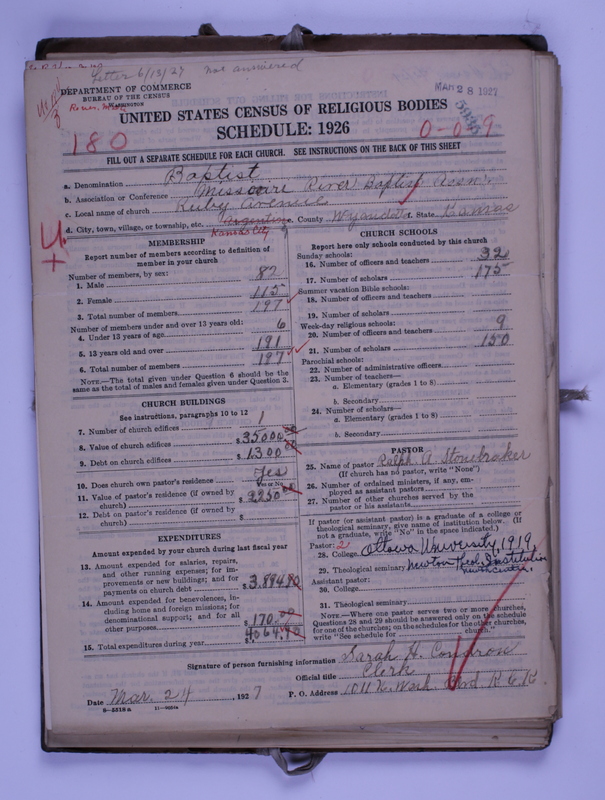 Letter 6/13/27 not answered
DEPARTMENT OF COMMERCE
BUREAU OF THE CENSUS
WASHINGTON
MAR 28 1927
UNITED STATES CENSUS OF RELIGIOUS BODIES
SCHEDULE: 1926
180
0-0-9
FILL OUT A SEPARATE SCHEDULE FOR EACH CHURCH. SEE INSTRUCTIONS ON THE BACK OF THIS SHEET
a. Denomination Baptist
b. Association or Conference Missouri River Baptist Assn.
c. Local name of church Ruby Avenue
d. City, town, village, or township, etc. Argentine e. County Wyandott f. State Kansas
Kansas City
MEMBERSHIP
Report number of members according to definition of member in your church
Number of members, by sex:
1. Male 82
2. Female 115
3. Total number of members 197
Number of members under and over 13 years old:
4. Under 13 years of age 6
5. 13 years old and over 191
6. Total number of members 197
NOTE.—The total given under Question 6 should be the
same as the total of males and females given under Question 3.
CHURCH BUILDINGS
See instructions, paragraphs 10 to 12
7. Number of church edifices 1
8. Value of church edifices $ 35000.00
9. Debt on church edifices $ 1300.00
10. Does church own pastor's residence? Yes
Yes or No
11. Value of pastor's residence (if owned by
church) $ 2250.00
12. Debt on pastor's residence (if owned by
church) $
EXPENDITURES
Amount expended by your church during last fiscal year
13. Amount expended for salaries, repairs,
and other running expenses; for im-
provements or new buildings; and for
payments on church debt $ 3,894.90
14. Amount expended for benevolences, in-
cluding home and foreign missions; for
denominational support; and for all
other purposes $ 170.00
15. Total expenditures during year 4064.90
CHURCH SCHOOLS
Report here only schools conducted by this church
Sunday schools:
16. Number of officers and teachers 32
17. Number of scholars 175
Summer vacation Bible schools:
18. Number of officers and teachers
19. Number of scholars
Week-day religious schools:
20. Number of officers and teachers 9
21. Number of scholars 150
Parochial schools:
22. Number of administrative officers
23. Number of teachers—
a. Elementary (grades 1 to 8)
b. Secondary
24. Number of scholars—
a. Elementary (grades 1 to 8)
b. Secondary
PASTOR
25. Name of pastor Ralph A. Stonebraker
(If church has no pastor, write "None")
26. Number of ordained ministers, if any, em-
ployed as assistant pastors
27. Number of other churches served by the
pastor or his assistants
If pastor (or assistant pastor) is a graduate of a college or
theological seminary, give name of institution below. (If
not a graduate, write "No" in the space indicated.)
Pastor: 2
28. College Ottawa University, 1919
29. Theological seminary Newton Theol. Institution
Assistant pastor:
30. College
31. Theological seminary
NOTE.—Where one pastor serves two or more churches,
Questions 28 and 29 should be answered only on the schedule
for one of the churches; on the schedules for the other churches,
write "See schedule for church."
Signature of person furnishing information Sarah H. Condron
Official title Clerk
Date Mar. 24, 1927 P. O. Address 1011